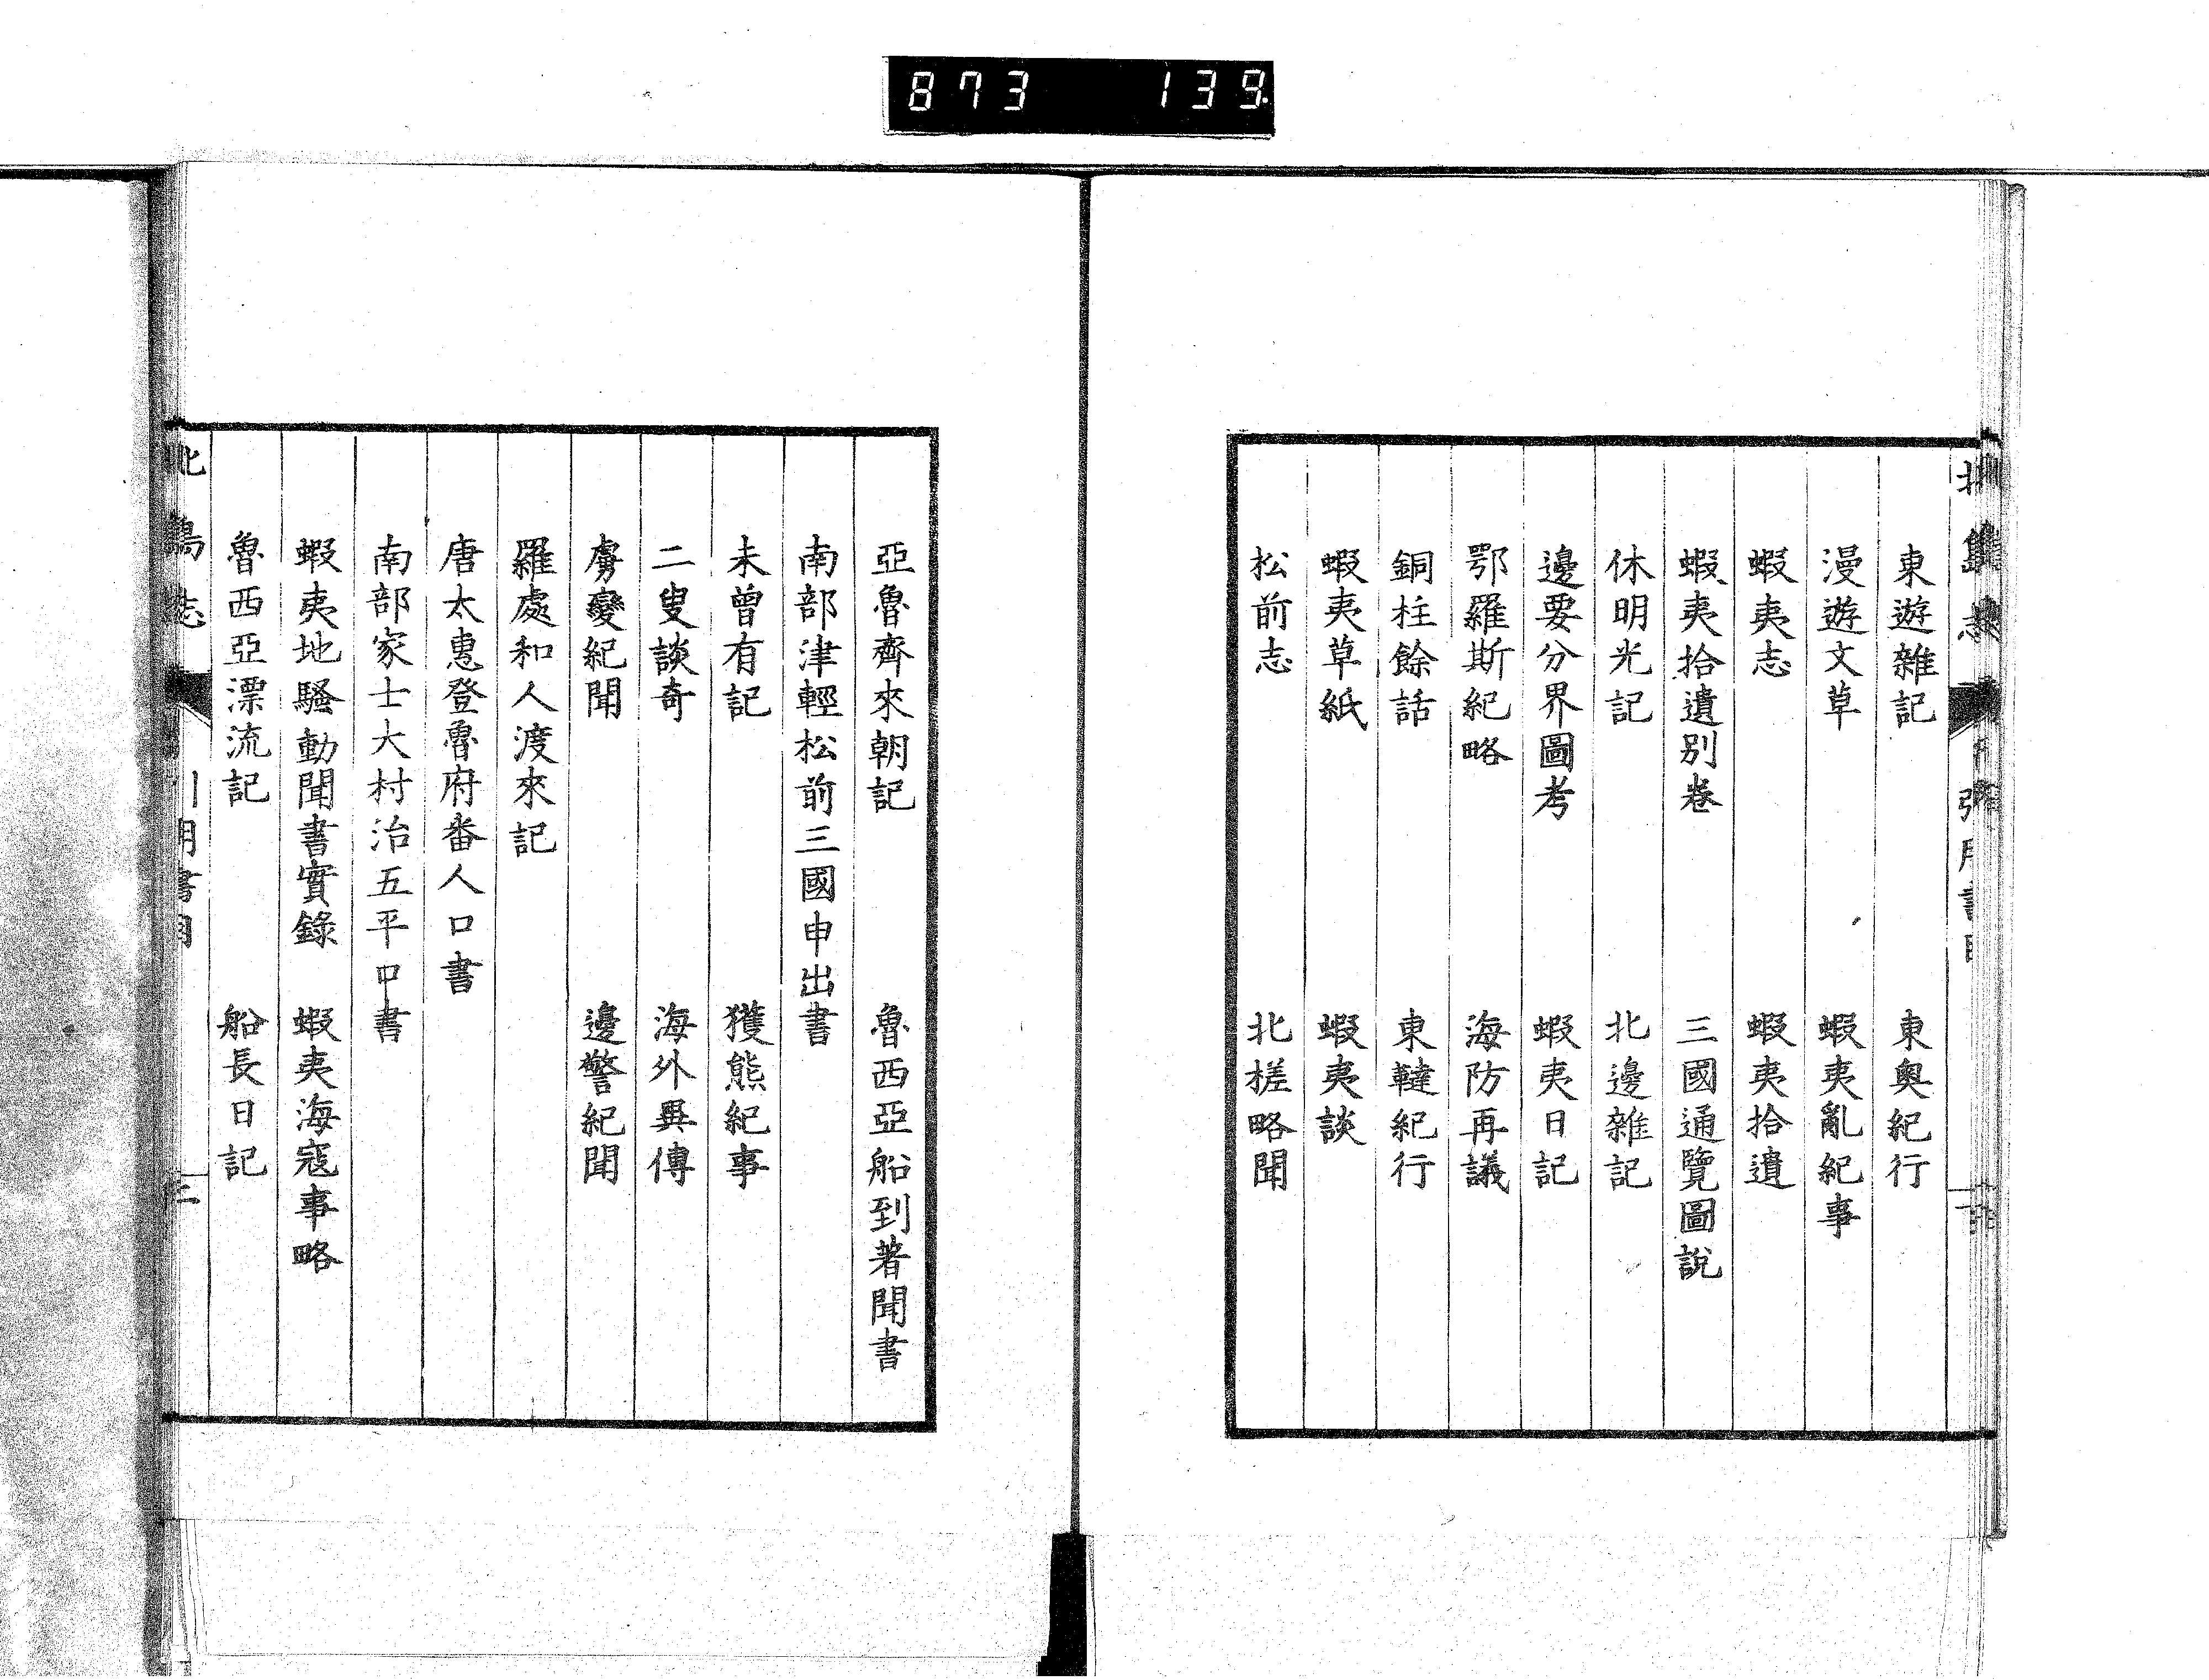 873 139
東遊雜記 東奧紀行
漫遊文草 蝦夷亂紀事
蝦夷志 蝦夷拾遺
蝦夷拾遺別卷 三國通覽圖說
休明光記 北邊雜記
邊要分界圖考 蝦夷日記
鄂羅斯紀略 海防再議
銅柱餘話 東韃紀行
蝦夷草紙 蝦夷談
松前志 北槎略聞
亞魯齊來朝記 魯西亞船到著聞書
南部津輕松前三國申出書
未曾有記 獲熊紀事
二叟談奇 海外異傳
虜變紀聞 邊警紀聞
羅處和人渡來記
唐太惠登魯府番人口書
南部家士大村治五平口書
蝦夷地騷動聞書實錄 蝦夷海寇事略
魯西亞漂流記 船長日記
北島志